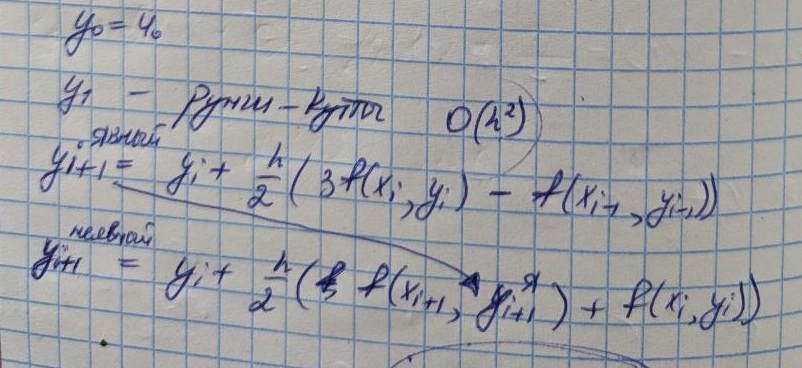 y₀ = u₀
y₁ - Рунги-Кутты O(h²)
yᵢ₊₁ явный = yᵢ + h/2 (3f(xᵢ, yᵢ) - f(xᵢ₋₁, yᵢ₋₁))
yᵢ₊₁ неявный = yᵢ + h/2 (f(xᵢ₊₁, yᵢ₊₁ᴲ) + f(xᵢ, yᵢ))